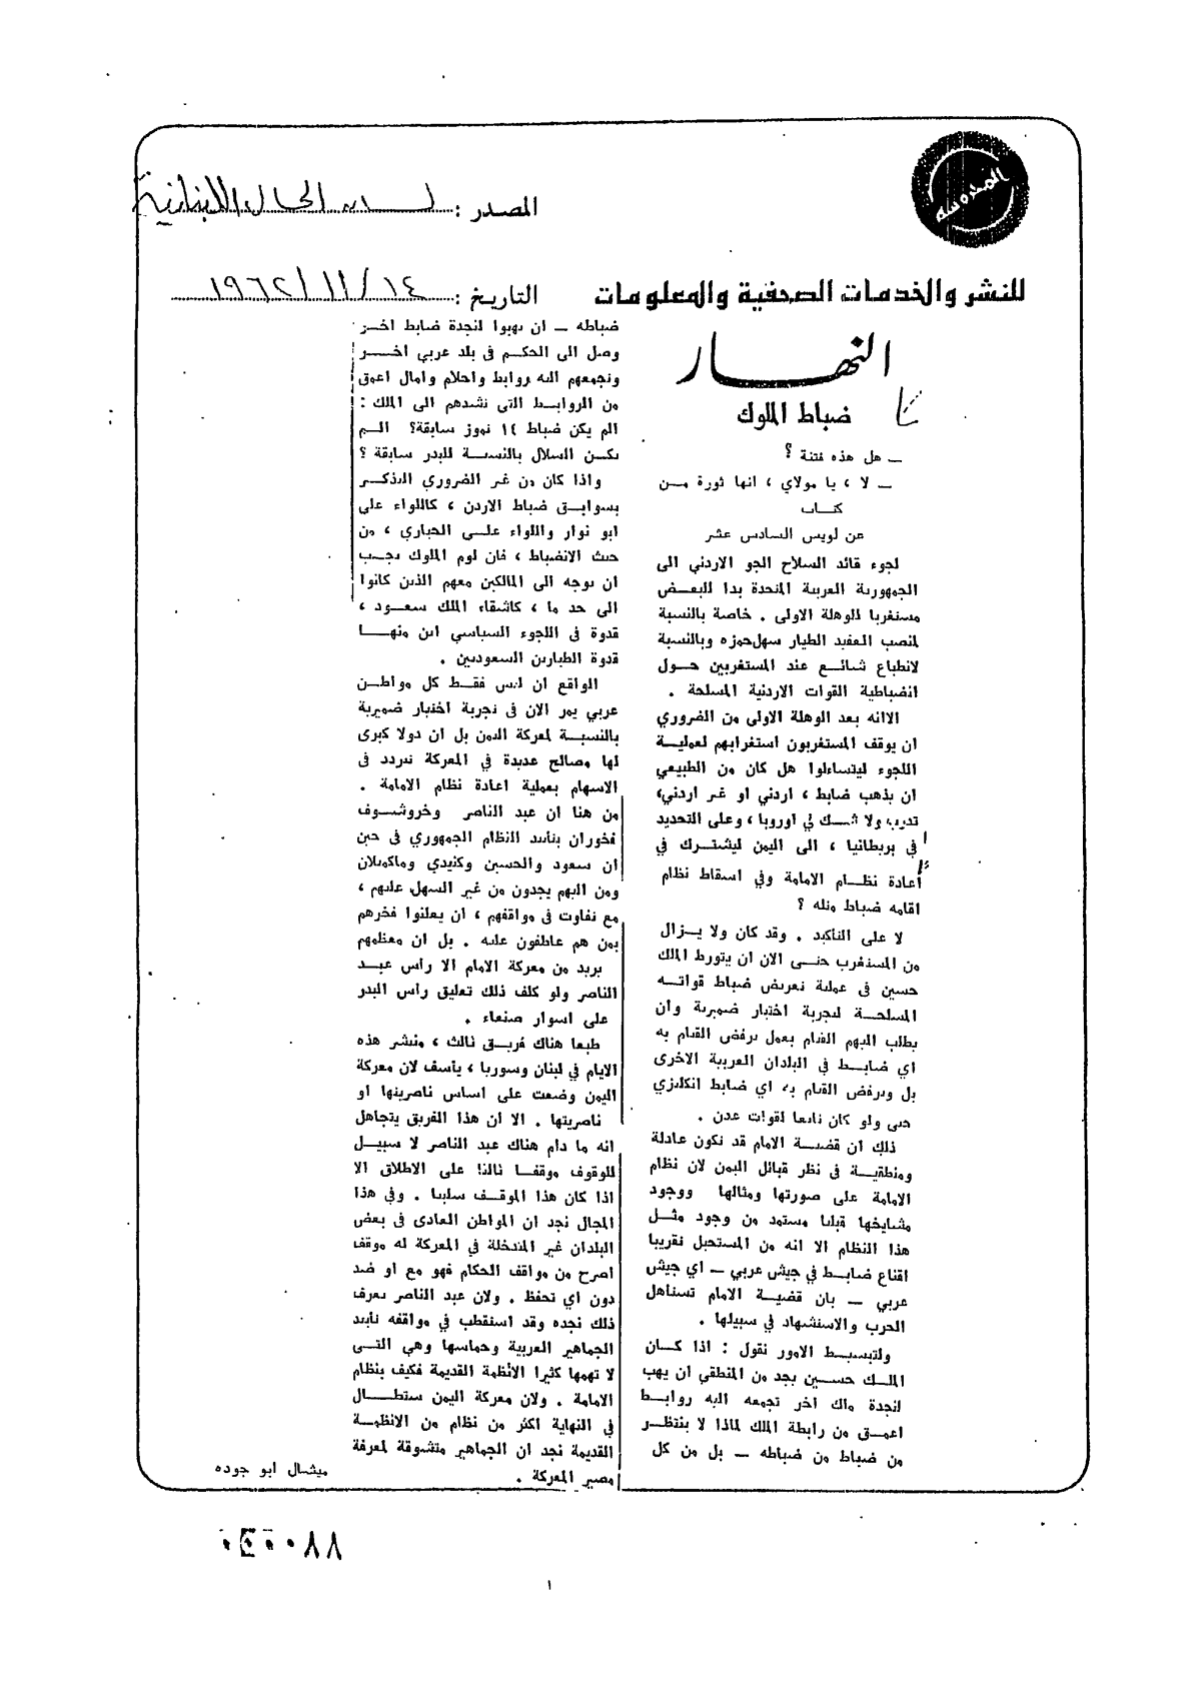 المصدر : لسان الحال اللبنانية
للنشر والخدمات الصحفية والمعلومات
التاريخ : ١٤ / ١١ / ١٩٦٢
النهار
ضباط الملوك
— هل هذه فتنة ؟
— لا ، يا مولاي ، انها ثورة مـن
كتـاب
عن لويس السادس عشر
لجوء قائد السلاح الجو الاردني الى
الجمهورية العربية المتحدة بدا للبعـض
مستغربا للوهلة الاولى . خاصة بالنسبة
لمنصب العقيد الطيار سهل حمزه وبالنسبة
لانطباع شائـع عند المستغربين حـول
انضباطية القوات الاردنية المسلحة .
الاانه بعد الوهلة الاولى من الضروري
ان يوقف المستغربون استغرابهم لعمليـة
اللجوء ليتساءلوا هل كان من الطبيعي
ان يذهب ضابط ، اردني او غير اردني،
تدرب ولا شـك في اوروبا ، وعلى التحديد
في بريطانيا ، الى اليمن ليشتـرك في
اعادة نظـام الامامة وفي اسقاط نظام
اقامه ضباط مثله ؟
لا على التأكيد . وقد كان ولا يـزال
من المستغرب حتـى الان ان يتورط الملك
حسين في عملية تعريض ضباط قواتـه
المسلحـة لتجربة اختبار ضميرية وان
يطلب اليهم القيام بعمل يرفض القيام به
اي ضابـط في البلدان العربية الاخرى
بل ويرفض القيام به اي ضابط انكليزي
حتى ولو كان تابعا لقوات عدن .
ذلك ان قضيـة الامام قد تكون عادلة
ومنطقيـة في نظر قبائل اليمن لان نظام
الامامة على صورتها ومثالها ووجود
مشايخها قبليا مستمد من وجود مثـل
هذا النظام الا انه من المستحيل تقريبا
اقناع ضابـط في جيش عربي — اي جيش
عربي — بان قضيـة الامام تستاهل
الحرب والاستشهاد في سبيلها .
ولتبسيـط الامور نقول : اذا كـان
الملـك حسـين يجد من المنطقي ان يهب
لنجدة ملك اخر تجمعه اليه روابـط
اعمـق من رابطة الملك لماذا لا ينتظـر
من ضباط من ضباطه — بل من كل
ضباطه — ان يهبوا لنجدة ضابط اخـر
وصل الى الحكـم في بلد عربي اخـر
وتجمعهم اليه روابط واحلام وامال اعمق
من الروابـط التي تشدهم الى الملك :
الم يكن ضباط ١٤ تموز سابقة؟ الـم
يكـن السلال بالنسبـة للبدر سابقة ؟
واذا كان من غير الضروري التذكـير
بسوابـق ضباط الاردن ، كاللواء على
ابو نوار واللواء علـى الحياري ، من
حيث الانضباط ، فان لوم الملوك يجـب
ان يوجه الى المالكين معهم الذين كانوا
الى حد ما ، كاشقاء الملك سعـود ،
قدوة في اللجوء السياسي اين منهـا
قدوة الطيارين السعوديين .
الواقع ان ليس فقـط كل مواطـن
عربي يمر الان في تجربة اختبار ضميرية
بالنسبـة لمعركة اليمن بل ان دولا كبرى
لها مصالح عديدة في المعركة تتردد في
الاسهام بعملية اعادة نظام الامامة .
من هنا ان عبد الناصر وخروشـوف
فخوران بتأييد النظام الجمهوري في حين
ان سعود والحسين وكنيدي وماكميلان
ومن اليهم يجدون من غير السهل عليهم ،
مع تفاوت في مواقفهم ، ان يعلنوا فخرهم
بمن هم عاطفون عليه . بل ان معظمهم
يريد من معركة الامام الا رأس عبـد
الناصر ولو كلف ذلك تعليق راس البدر
على اسوار صنعاء .
طبعا هناك فريـق ثالث ، منتشر هذه
الايام في لبنان وسوريا ، يأسف لان معركة
اليمن وضعت على اساس ناصريتها او
ناصريتها . الا ان هذا الفريق يتجاهل
انه ما دام هناك عبد الناصر لا سبيـل
للوقوف موقفـا ثالثا على الاطلاق الا
اذا كان هذا الموقـف سلبيا . وفي هذا
المجال نجد ان المواطن العادي في بعض
البلدان غير المتدخلة في المعركة له موقف
اصرح من مواقف الحكام فهو مع او ضد
دون اي تحفظ . ولان عبد الناصر يعرف
ذلك نجده وقد استقطب في مواقفه تأييد
الجماهير العربية وحماسها وهي التـي
لا تهمها كثيرا الانظمة القديمة فكيف بنظام
الامامة . ولان معركة اليمن ستطـال
في النهاية اكثر من نظام من الانظمـة
القديمة نجد ان الجماهير متشوقة لمعرفة
مصير المعركة .
ميشال ابو جوده
١